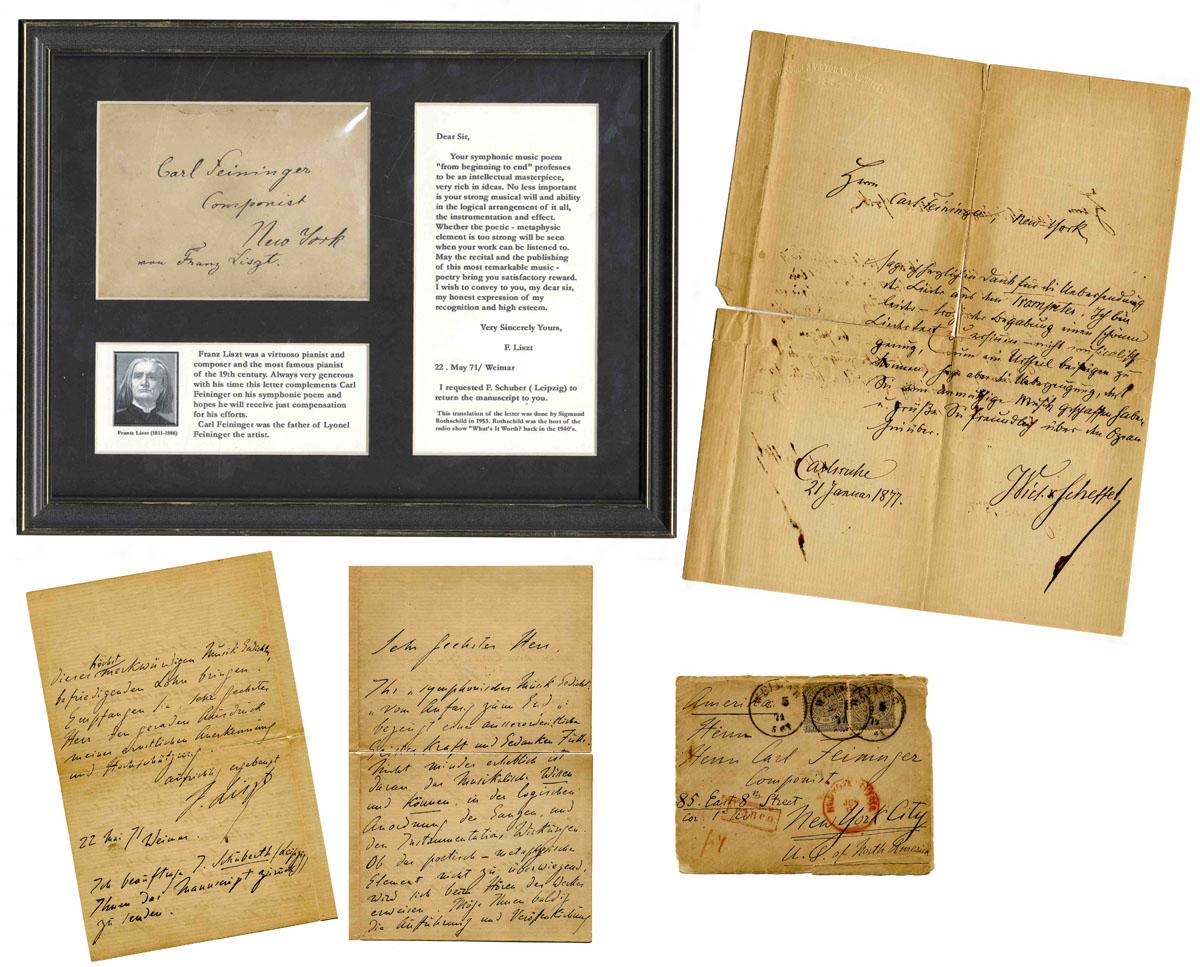 Carl Feininger
Componist
New York
von Franz Liszt.
Franz Liszt was a virtuoso pianist and
composer and the most famous pianist
of the 19th century. Always very generous
with his time this letter complements Carl
Feininger on his symphonic poem and
hopes he will receive just compensation
for his efforts.
Carl Feininger was the father of Lyonel
Feininger the artist.
Frantz Liszt (1811-1886)
Dear Sir,
Your symphonic music poem
"from beginning to end" professes
to be an intellectual masterpiece,
very rich in ideas. No less important
is your strong musical will and ability
in the logical arrangement of it all,
the instrumentation and effect.
Whether the poetic - metaphysic
element is too strong will be seen
when your work can be listened to.
May the recital and the publishing
of this most remarkable music -
poetry bring you satisfactory reward.
I wish to convey to you, my dear sir,
my honest expression of my
recognition and high esteem.
Very Sincerely Yours,
F. Liszt
22 . May 71/ Weimar
I requested F. Schuber ( Leipzig) to
return the manuscript to you.
This translation of the letter was done by Sigmund
Rothschild in 1953. Rothschild was the host of the
radio show "What's It Worth? back in the 1940's.
Herrn
Carl Feininger
New-York
herzlichen Dank für die Uebersendung
der Lieder aus dem Trompeter. Ich bin
leider - trotz der Begabung einen schönen
Liedertext zu erfinden - nicht musicalisch
genug, um ein Urtheil beifügen zu
können, hege aber die Ueberzeugung, daß
Sie eine anmuthige Musik geschaffen haben
u. grüße Sie freundlich über den Ozean
hinüber.
Carlsruhe
21 Januar 1877.
J Vict. v Scheffel
dieser höchst merkwürdigen Musik Gedichte
befriedigenden Lohn bringen.
Empfangen Sie, sehr geehrter
Herr den geraden Ausdruck
meiner ernstlichen Anerkennung
und Hochschätzung.
aufrichtig ergebenst
F. Liszt
22 Mai 71 Weimar.
Ich beauftrage J. Schuberth (Leipzig)
Ihnen das Manuscript zurück
zu senden.
Sehr geehrter Herr,
Ihr "symphonisches Musik Gedicht
"vom Anfang zum End":
bezeugt eine ausserordentliche
Geistes Kraft und Gedanken Fülle.
Nicht minder erheblich ist
daran das Musikalische Wissen
und Können, in der logischen
Anordnung des Ganzen, und
den Instrumentation Wirkungen.
Ob das poetisch - metaphysische
Element nicht zu überwiegend,
wird sich beim Hören des Werkes
erweisen. Möge Ihnen baldig
die Aufführung und Veröffentlichung
Amerika
Herrn
Herrn Carl Feininger
Componist
85. East 8th Street
New York City
U. S. of North America